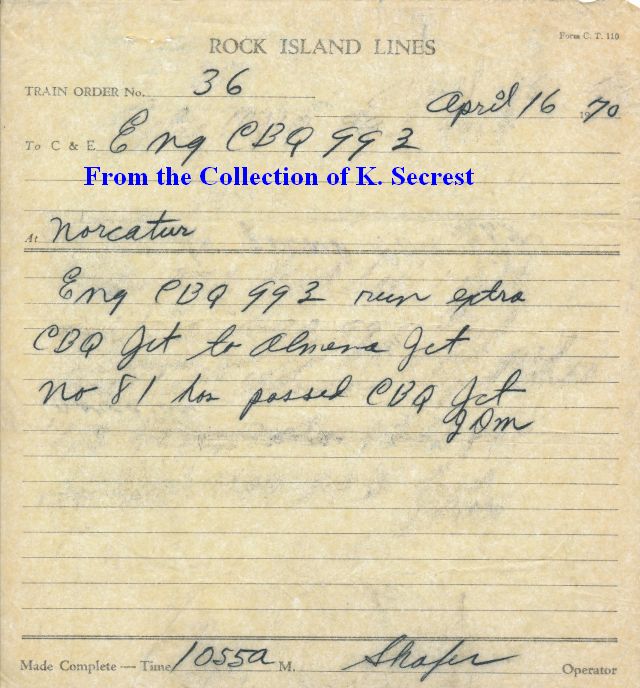 Form C. T. 110
ROCK ISLAND LINES
TRAIN ORDER No. 36
April 16 1970
To C & E Eng CBQ 993
From the Collection of K. Secrest
At Norcatur
Eng CBQ 993 run extra
CBQ Jct to Almena Jct
No 81 has passed CBQ Jct
JDM
Made Complete — Time 1055a M. Shafer Operator